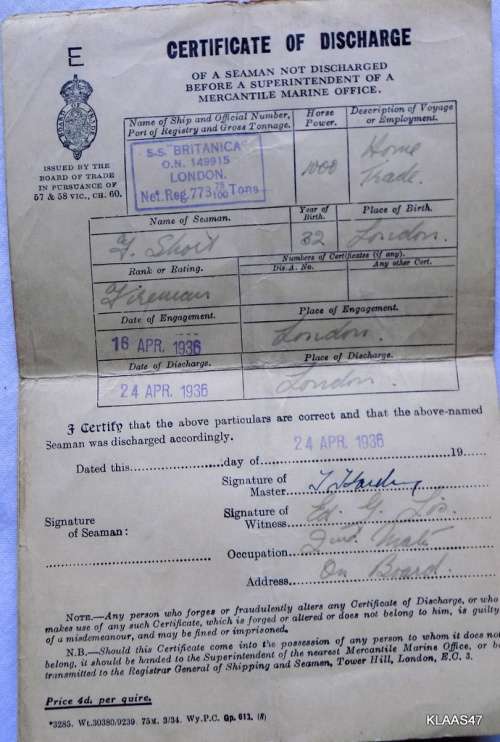 E
CERTIFICATE OF DISCHARGE
OF A SEAMAN NOT DISCHARGED
BEFORE A SUPERINTENDENT OF A
MERCANTILE MARINE OFFICE.
BOARD OF TRADE
ISSUED BY THE
BOARD OF TRADE
IN PURSUANCE OF
57 & 58 VIC., CH. 60.
Name of Ship and Official Number,
Port of Registry and Gross Tonnage.
Horse
Power.
Description of Voyage
or Employment.
S.S. "BRITANICA"
O.N. 149915
LONDON.
Net. Reg. 773 78/100 Tons
Home
Trade.
Name of Seaman.
Year of
Birth.
Place of Birth.
F. Short
32
London.
Rank or Rating.
Numbers of Certificates (if any).
Dis. A. No.
Any other Cert.
Fireman
Date of Engagement.
Place of Engagement.
16 APR. 1936
London.
Date of Discharge.
Place of Discharge.
24 APR. 1936
London.
I Certify that the above particulars are correct and that the above-named
Seaman was discharged accordingly.
24 APR. 1936
Dated this day of 19
Signature of
Master
Signature
of Seaman:
Signature of
Witness
Occupation 2nd. Mate
Address On Board.
NOTE.—Any person who forges or fraudulently alters any Certificate of Discharge, or who
makes use of any such Certificate, which is forged or altered or does not belong to him, is guilty
of a misdemeanour, and may be fined or imprisoned.
N.B.—Should this Certificate come into the possession of any person to whom it does not
belong, it should be handed to the Superintendent of the nearest Mercantile Marine Office, or be
transmitted to the Registrar General of Shipping and Seamen, Tower Hill, London, E.C. 3.
Price 4d. per quire.
*3285. Wt.30380/9239. 75M. 3/34. Wy.P.C. Gp. 613. (8)
KLAAS47